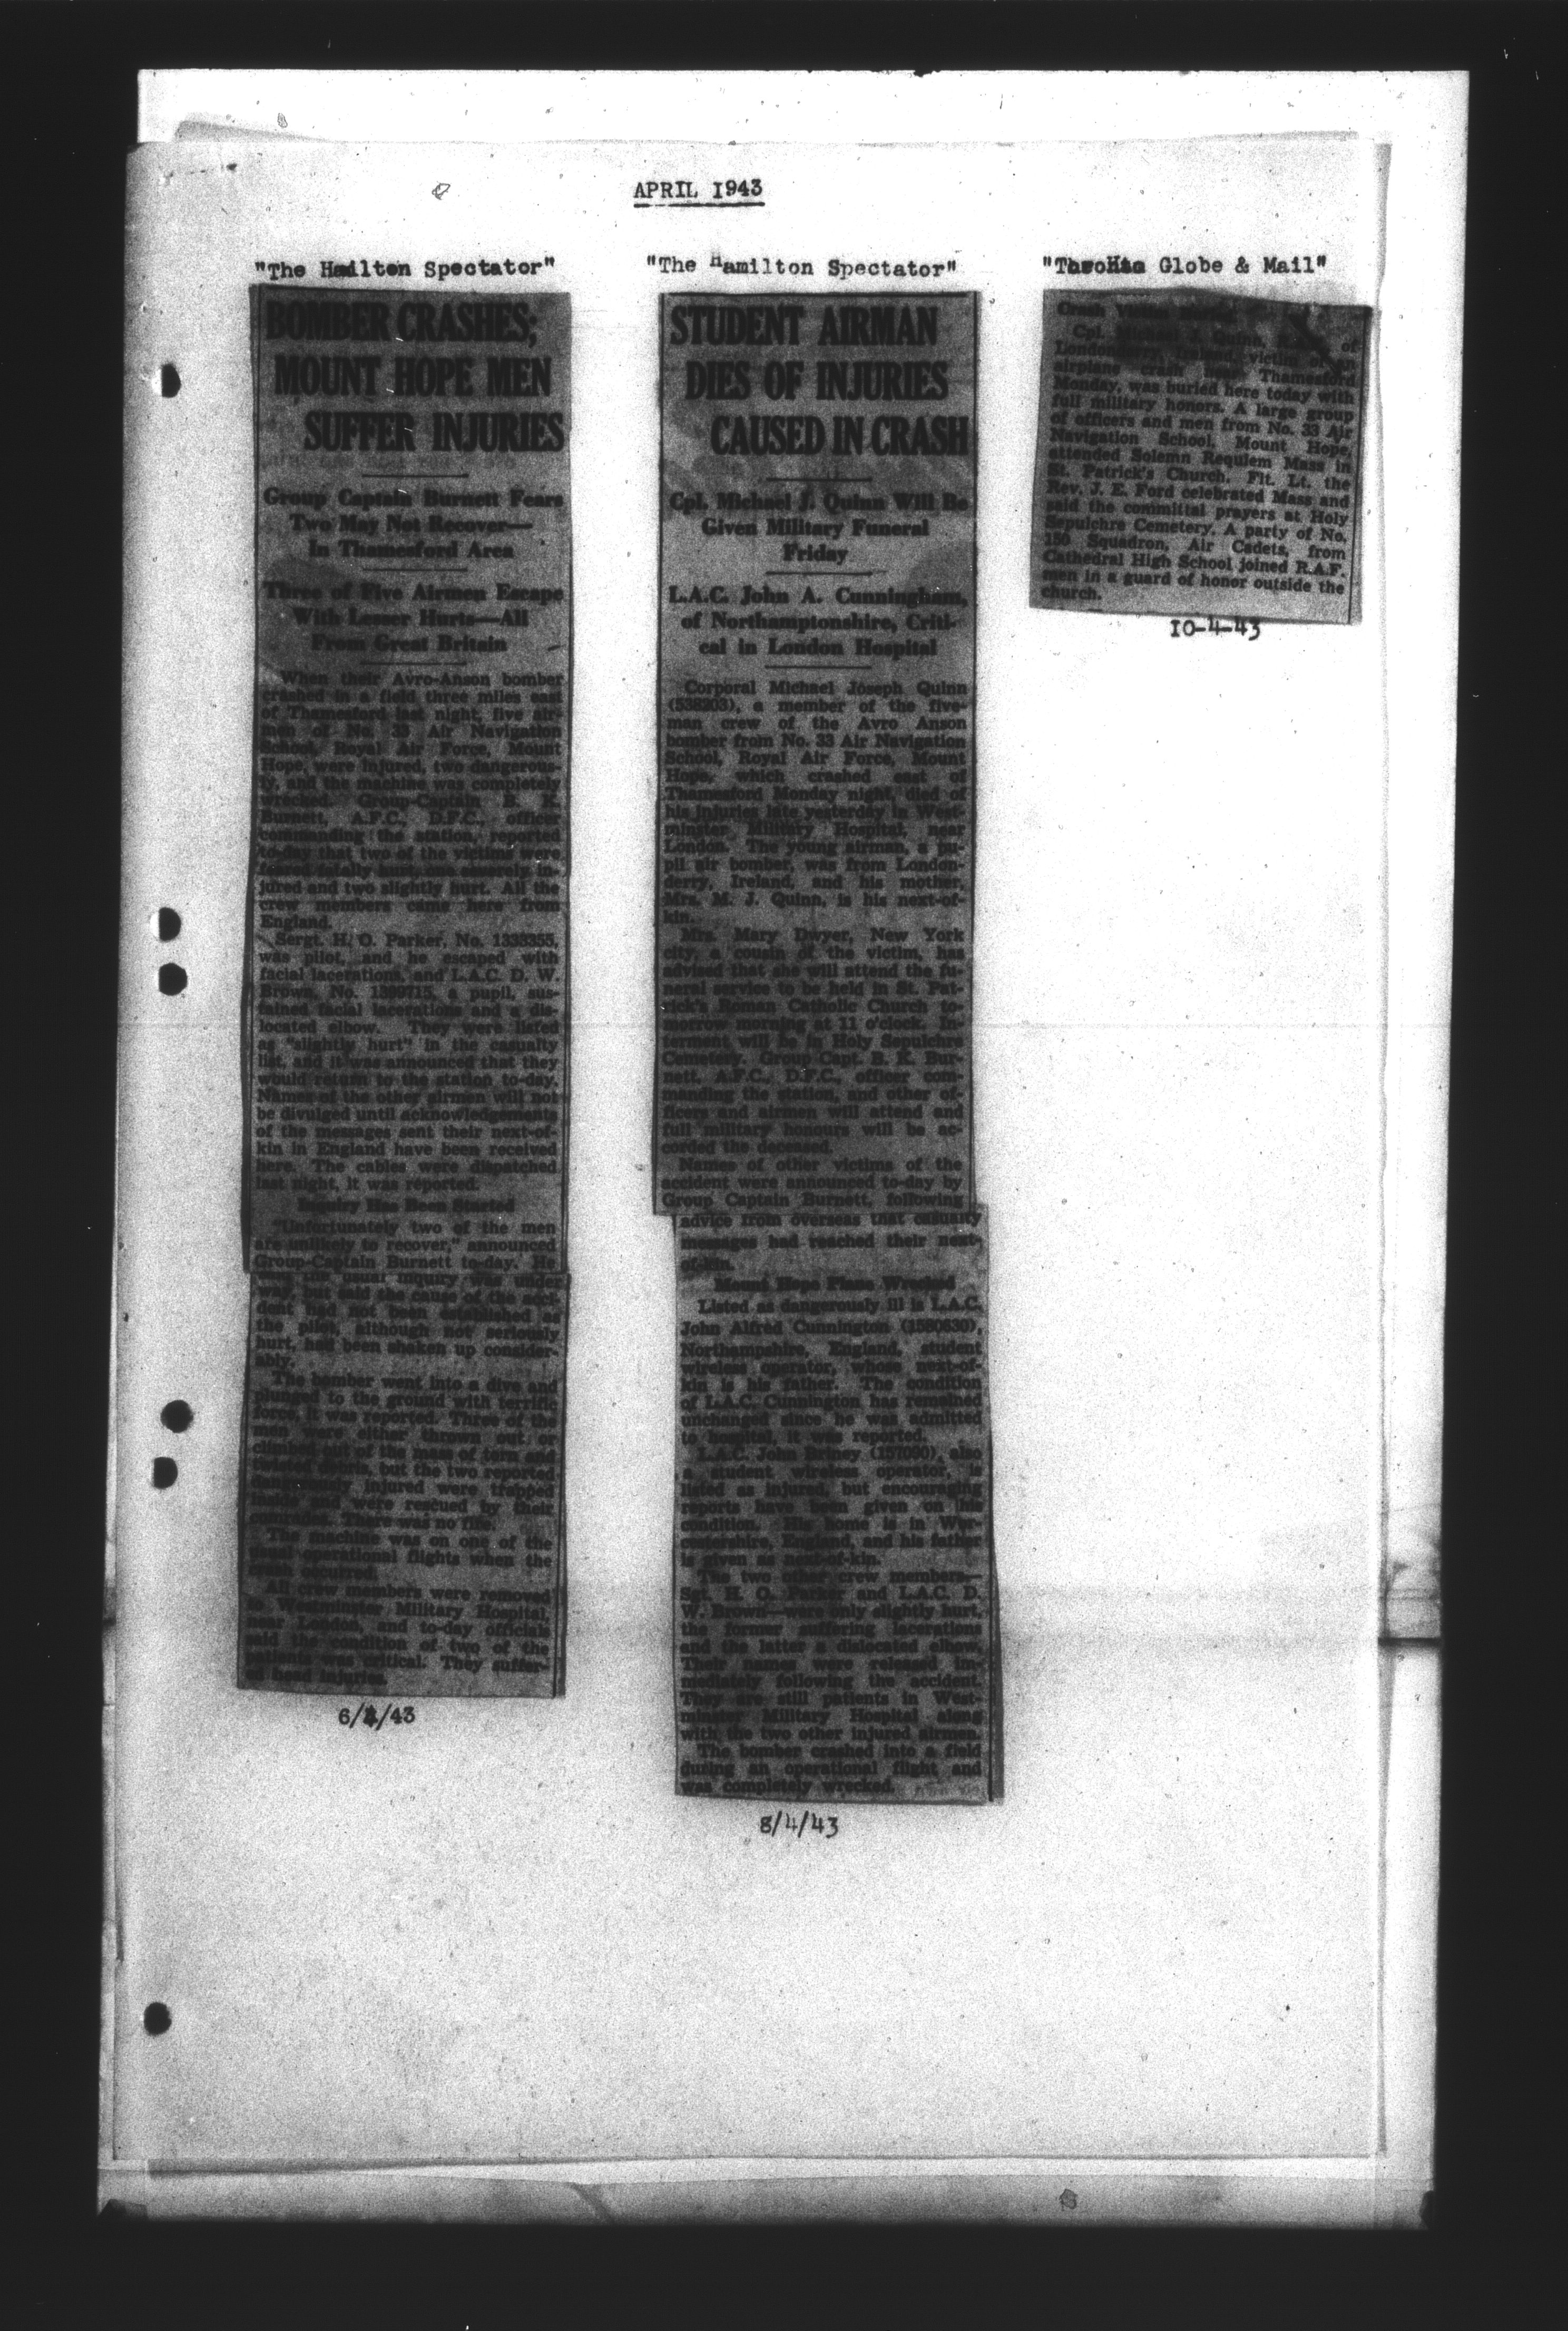 APRIL 1943
"The Hamilton Spectator"
BOMBER CRASHES;
MOUNT HOPE MEN
SUFFER INJURIES
Group Captain Burnett Fears
Two May Not Recover—
In Thamesford Area
Three of Five Airmen Escape
With Lesser Hurts—All
From Great Britain
When their Avro-Anson bomber
crashed in a field three miles east
of Thamesford last night, five air-
men of No. 33 Air Navigation
School, Royal Air Force, Mount
Hope, were injured, two dangerous-
ly, and the machine was completely
wrecked. Group-Captain B. K.
Burnett, A.F.C., D.F.C., officer
commanding the station, reported
to-day that two of the victims were
feared fatally hurt, one severely in-
jured and two slightly hurt. All the
crew members came here from
England.
Sergt. H. O. Parker, No. 1333355,
was pilot, and he escaped with
facial lacerations, and L.A.C. D. W.
Brown, No. 1399715, a pupil, sus-
tained facial lacerations and a dis-
located elbow. They were listed
as "slightly hurt" in the casualty
list, and it was announced that they
would return to the station to-day.
Names of the other airmen will not
be divulged until acknowledgements
of the messages sent their next-of-
kin in England have been received
here. The cables were dispatched
last night, it was reported.
Inquiry Has Been Started
"Unfortunately two of the men
are unlikely to recover," announced
Group-Captain Burnett to-day. He
said the usual inquiry was under
way, but said the cause of the acci-
dent had not been established as
the pilot, although not seriously
hurt, had been shaken up consider-
ably.
The bomber went into a dive and
plunged to the ground with terrific
force, it was reported. Three of the
men were either thrown out or
climbed out of the mass of torn and
twisted debris, but the two reported
dangerously injured were trapped
inside and were rescued by their
comrades. There was no fire.
The machine was on one of the
usual operational flights when the
crash occurred.
All crew members were removed
to Westminster Military Hospital,
near London, and to-day officials
said the condition of two of the
patients was critical. They suffer-
ed head injuries.
6/4/43
"The Hamilton Spectator"
STUDENT AIRMAN
DIES OF INJURIES
CAUSED IN CRASH
Cpl. Michael J. Quinn Will Be
Given Military Funeral
Friday
L.A.C. John A. Cunningham,
of Northamptonshire, Criti-
cal in London Hospital
Corporal Michael Joseph Quinn
(538203), a member of the five-
man crew of the Avro Anson
bomber from No. 33 Air Navigation
School, Royal Air Force, Mount
Hope, which crashed east of
Thamesford Monday night, died of
his injuries late yesterday in West-
minster Military Hospital, near
London. The young airman, a pu-
pil air bomber, was from London-
derry, Ireland, and his mother,
Mrs. M. J. Quinn, is his next-of-
kin.
Mrs. Mary Dwyer, New York
city, a cousin of the victim, has
advised that she will attend the fu-
neral service to be held in St. Pat-
rick's Roman Catholic Church to-
morrow morning at 11 o'clock. In-
terment will be in Holy Sepulchre
Cemetery. Group Capt. B. K. Bur-
nett, A.F.C., D.F.C., officer com-
manding the station, and other of-
ficers and airmen will attend and
full military honours will be ac-
corded the deceased.
Names of other victims of the
accident were announced to-day by
Group Captain Burnett, following
advice from overseas that casualty
messages had reached their next-
of-kin.
Mount Hope Plane Wrecked
Listed as dangerously ill is L.A.C.
John Alfred Cunnington (1580630),
Northampshire, England, student
wireless operator, whose next-of-
kin is his father. The condition
of L.A.C. Cunnington has remained
unchanged since he was admitted
to hospital, it was reported.
L.A.C. John Briney (157090), also
a student wireless operator, is
listed as injured, but encouraging
reports have been given on his
condition. His home is in Wor-
cestershire, England, and his father
is given as next-of-kin.
The two other crew members—
Sgt. H. O. Parker and L.A.C. D.
W. Brown—were only slightly hurt,
the former suffering lacerations
and the latter a dislocated elbow.
Their names were released im-
mediately following the accident.
They are still patients in West-
minster Military Hospital along
with the two other injured airmen.
The bomber crashed into a field
during an operational flight and
was completely wrecked.
8/4/43
Globe & Mail"
Crash Victim
Cpl. Michael J. Quinn, of
Londonderry, Ireland, victim of an
airplane crash near Thamesford
Monday, was buried here today with
full military honors. A large group
of officers and men from No. 33 Air
Navigation School, Mount Hope,
attended Solemn Requiem Mass in
St. Patrick's Church. Flt. Lt. the
Rev. J. E. Ford celebrated Mass and
said the committal prayers at Holy
Sepulchre Cemetery. A party of No.
150 Squadron, Air Cadets, from
Cathedral High School joined R.A.F.
men in a guard of honor outside the
church.
10-4-43